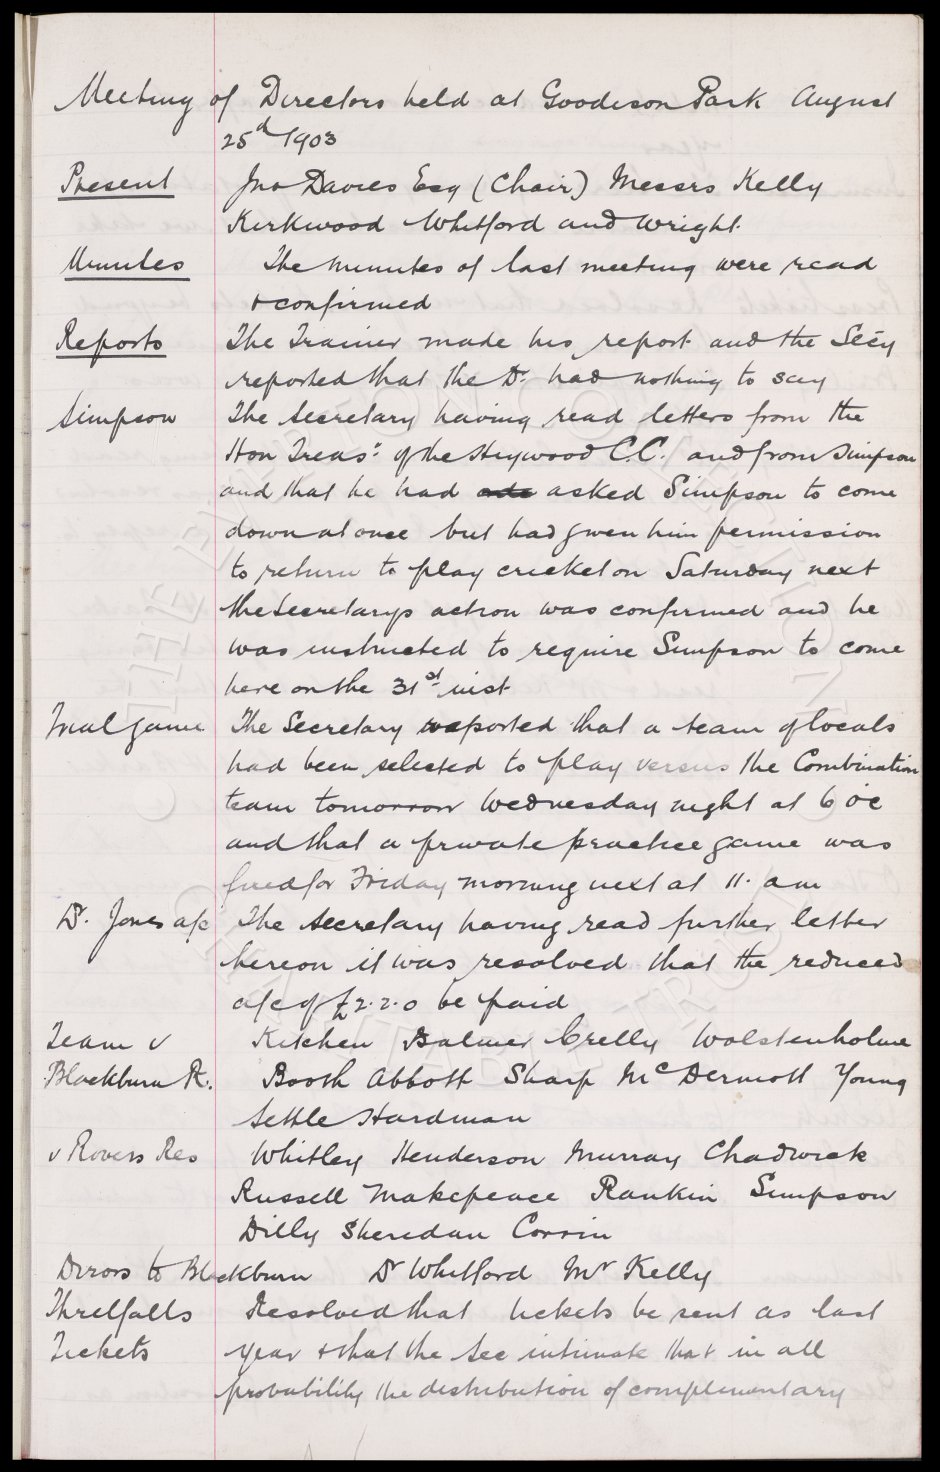 Meeting of Directors held at Goodison Park August
25d/1903
Present Jno Davies Esq (Chair) Messrs Kelly
Kirkwood Whitford and Wright.
Minutes The minutes of last meeting were read
+ confirmed
Reports The Trainer made his report and the Secy
reported that the Dr. had nothing to say
Simpson The Secretary having read letters from the
Hon Treasr of the Heywood C.C. and from Simpson
and that he had asked Simpson to come
down at once but had given him permission
to return to play cricket on Saturday next
the Secretarys action was confirmed and he
was instructed to require Simpson to come
here on the 31st inst
Trial game The Secretary reported that a team of locals
had been selected to play versus the Combination
team tomorrow Wednesday night at 6 oc
and that a private practice game was
fixed for Friday morning next at 11. am
Dr. Jones a/c The Secretary having read further letter
hereon it was resolved that the reduced
a/c of £2.2.0 be paid
Team v Kitchen Balmer Crelly Wolstenholme
Blackburn R. Booth Abbott Sharp McDermott Young
Settle Hardman
v Rovers Res Whitley Henderson Murray Chadwick
Russell Makepeace Rankin Simpson
Dilly Sheridan Corrin
Dirors to Blackburn Dr Whitford Mr Kelly
Threlfalls Resolved that tickets be sent as last
Tickets year + that the Sec intimate that in all
probability the distribution of complimentary